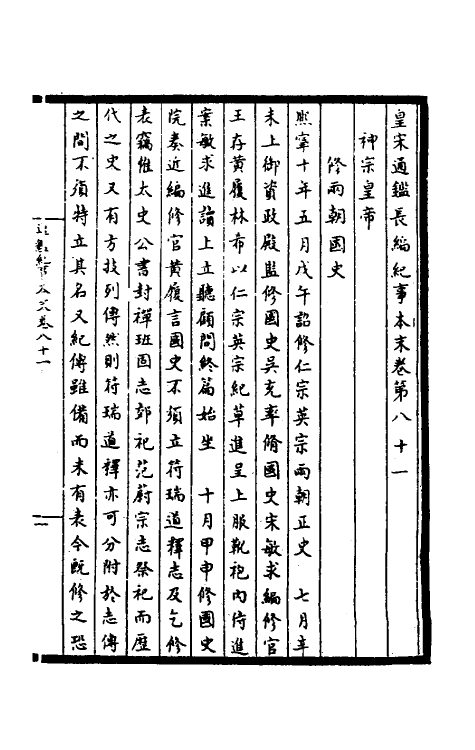 皇宋通鑑長編紀事本末卷第八十一
神宗皇帝
修兩朝國史
熙寧十年五月戊午詔修仁宗英宗兩朝正史　七月辛
未上御資政殿監修國史吳充率脩國史宋敏求編修官
王存黃履林希以仁宗英宗紀草進呈上服靴袍內侍進
案敏求進讀上立聽顧問終篇始坐　十月甲申修國史
院奏近編修官黃履言國史不須立符瑞道釋志及乞修
表竊惟太史公書封禪班固志郊祀范蔚宗志祭祀而歷
代之史又有方技列傳然則符瑞道釋亦可分附於志傳
之間不須特立其名又紀傳雖備而未有表今既修之恐
卷八十一
一